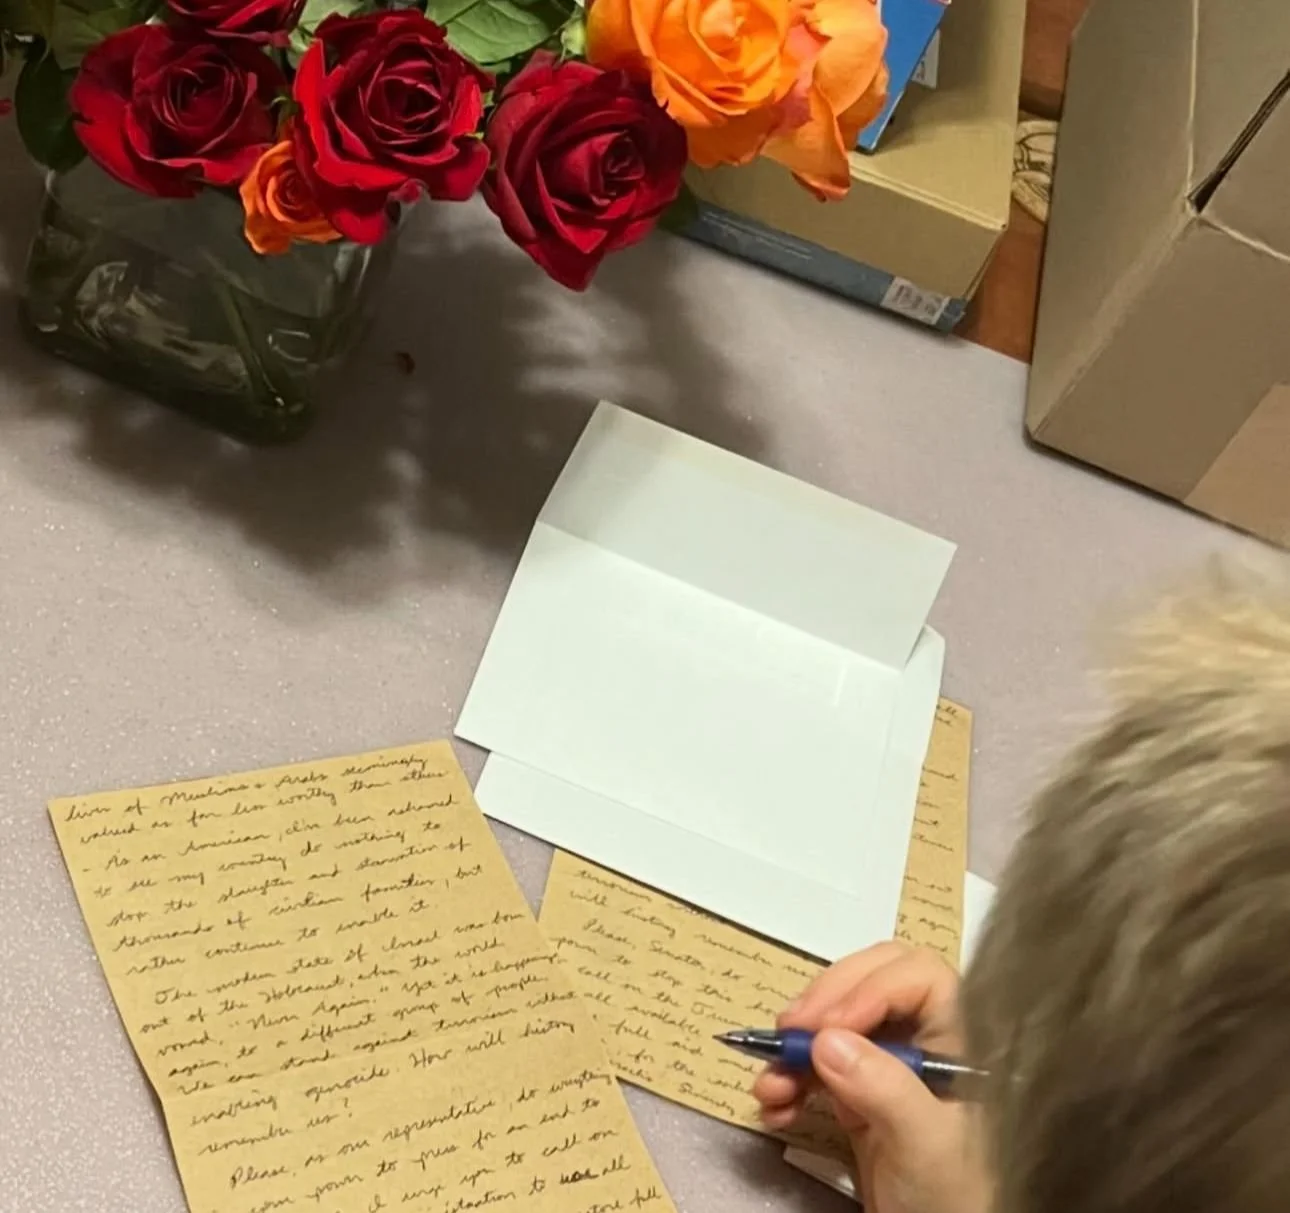 lives of Muslims & Arabs seemingly
valued as far less worthy than others
- As an American, I've been ashamed
to see my country do nothing to
stop the slaughter and starvation of
thousands of civilian families, but
rather continue to enable it.
The modern state of Israel was born
out of the Holocaust, when the world
vowed, "Never Again." Yet it is happening
again, to a different group of people.
We can stand against terrorism without
enabling genocide. How will history
remember us?
Please, as our representative, do everything
your power to press for an end to
I urge you to call on
to use all
restore full
terrorism
will history remember
Please, Senator, do
power to stop this
call on the
all available
full aid and
for the
Sincerely